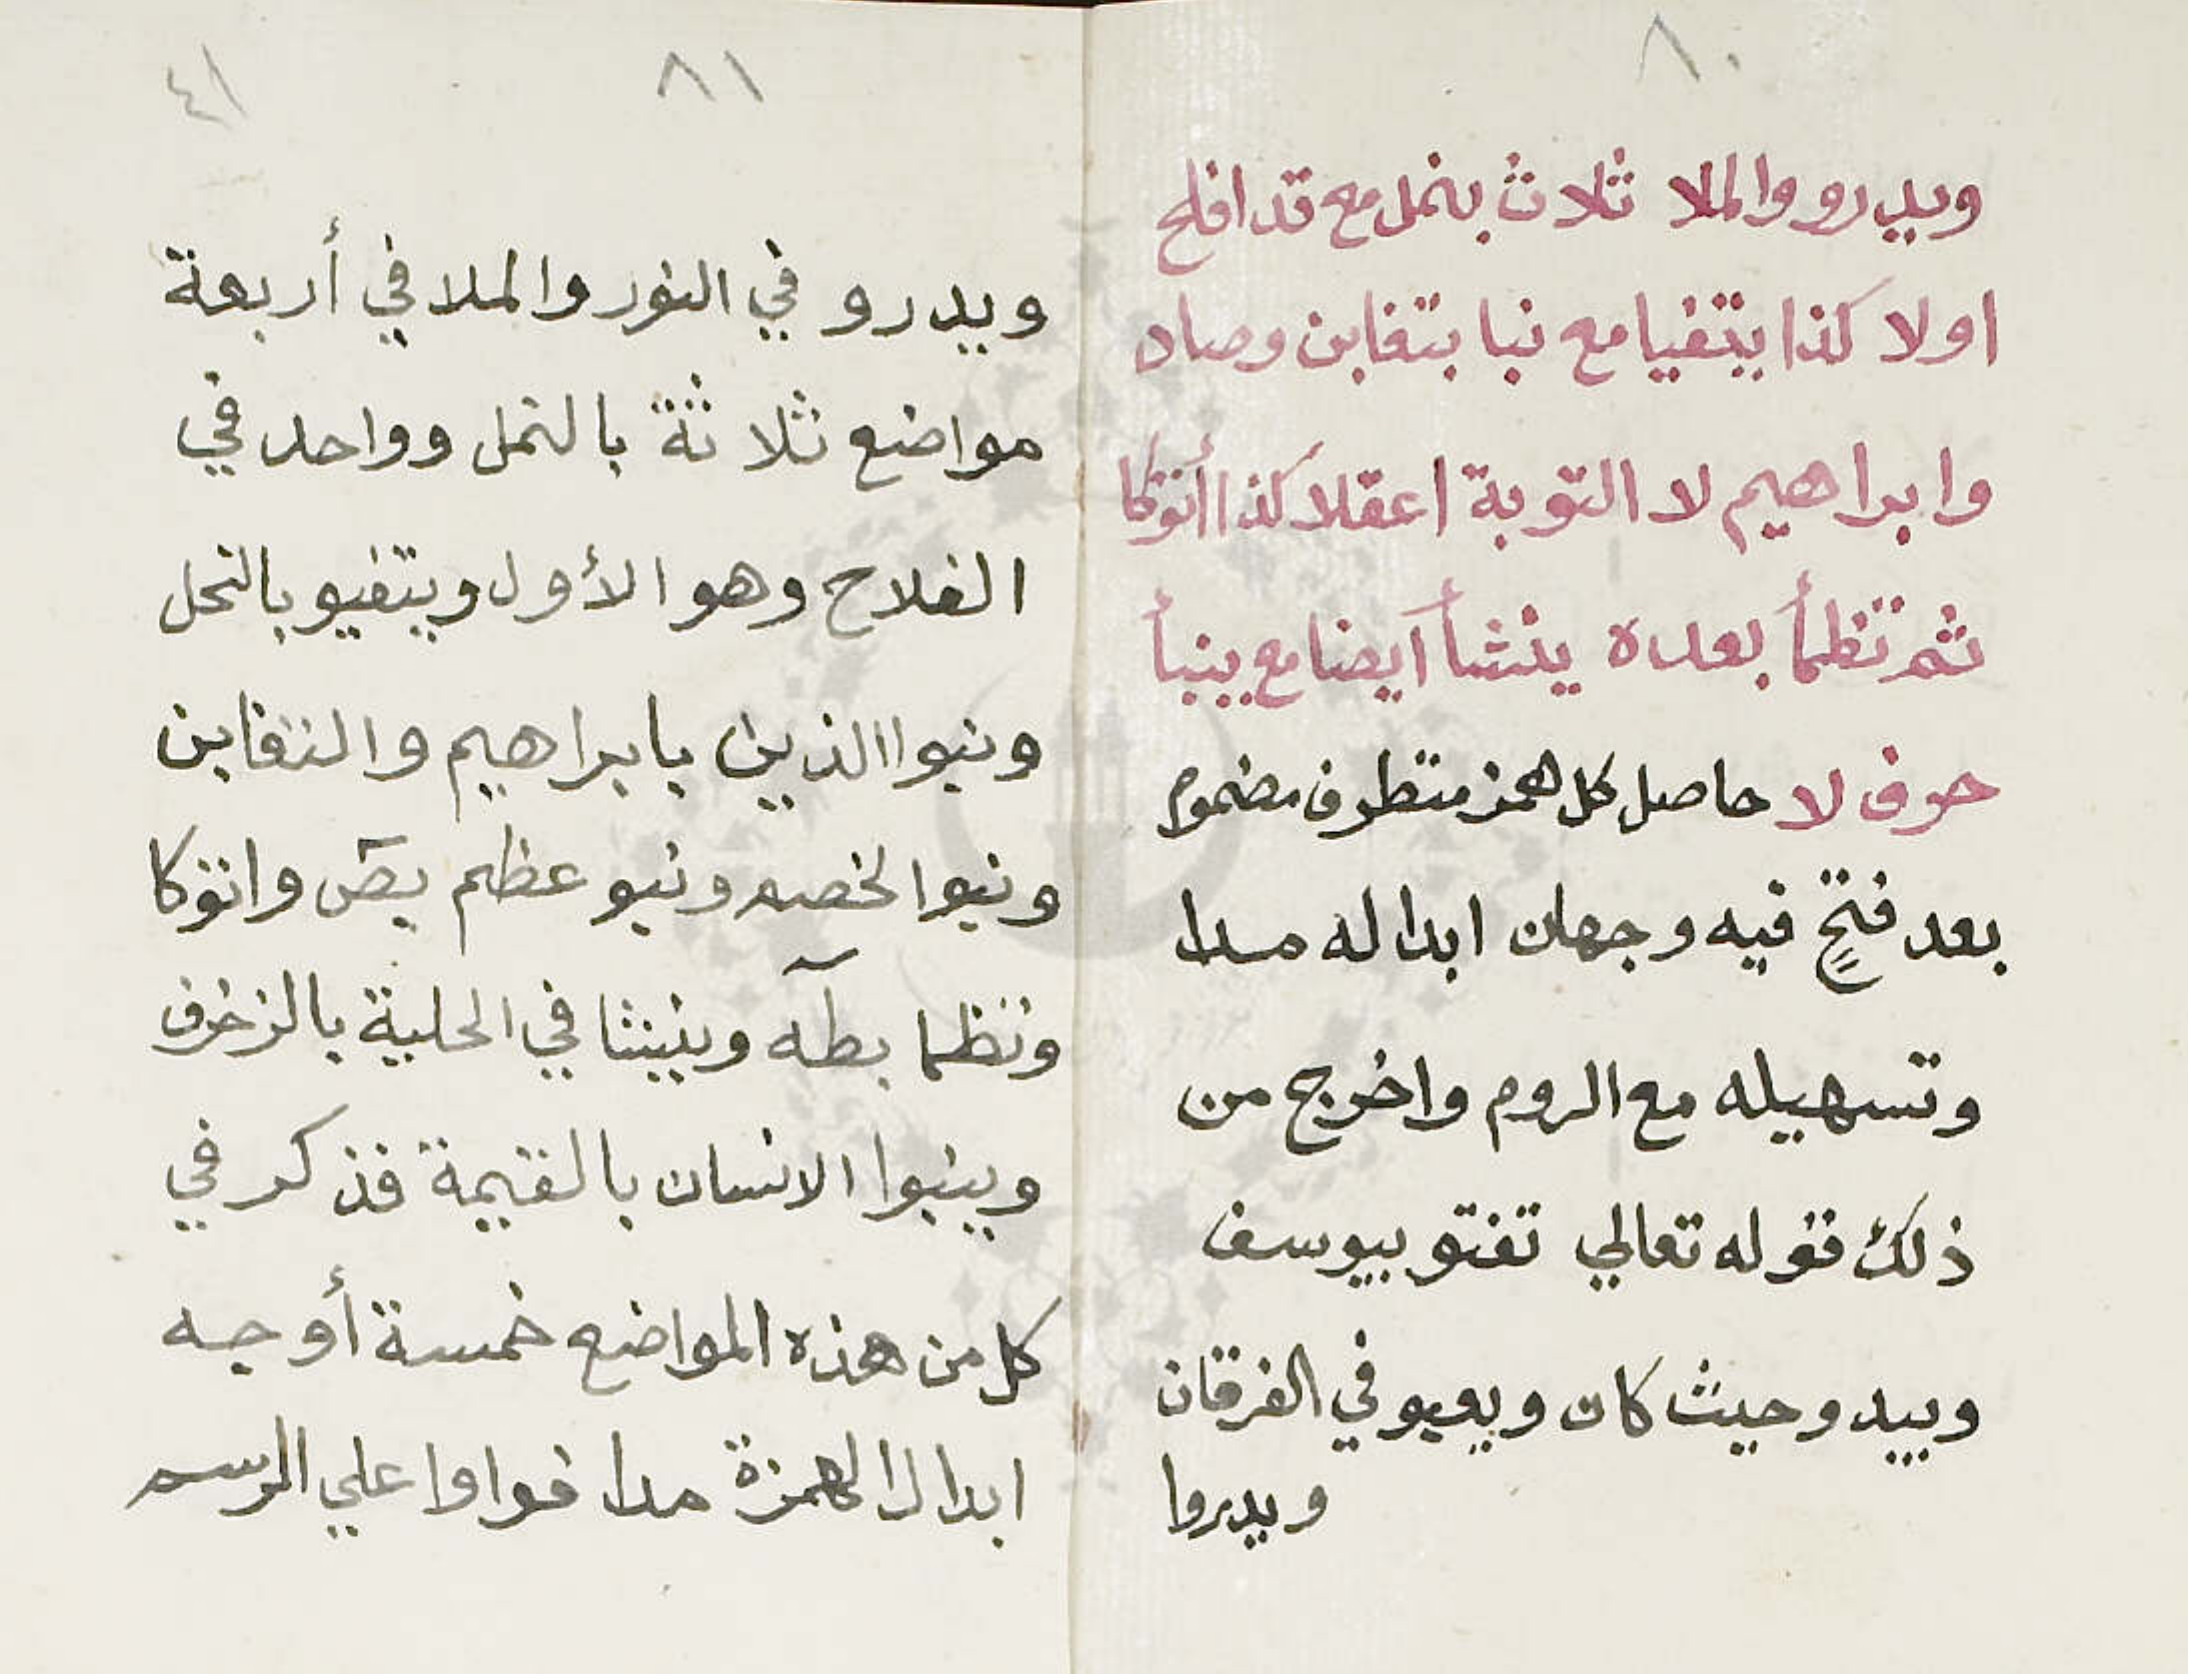 ٨٠
ويدرو والملا ثلاث بنمل مع قد افلح
اولا كذا يتفيا مع نبا بتغابن وصاد
وابراهيم لا التوبة اعقلا كذا أتوكا
ثم تظمأ بعده ينشأ أيضا مع ينبأ
حرف لا حاصل كل همز متطرف مضموم
بعد فتحٍ فيه وجهان ابداله مدا
وتسهيله مع الروم واخرج من
ذلك قوله تعالي تفتو بيوسف
ويبدو حيث كان ويعبو في الفرقان
ويدروا
٨١
٤١
ويدرو في النور والملا في أربعة
مواضع ثلاثة بالنمل وواحد في
الفلاح وهو الأول ويتفيو بالنحل
ونبوا الذين بابراهيم والتغابن
ونبوا الخصم ونبو عظم بصۤ واتوكا
وتظما بطۤه وينشا في الحلية بالزخرف
وينبوا الانسان بالقيمة فذكر في
كل من هذه المواضع خمسة أوجه
ابدال الهمزة مدا فواوا علي الرسم